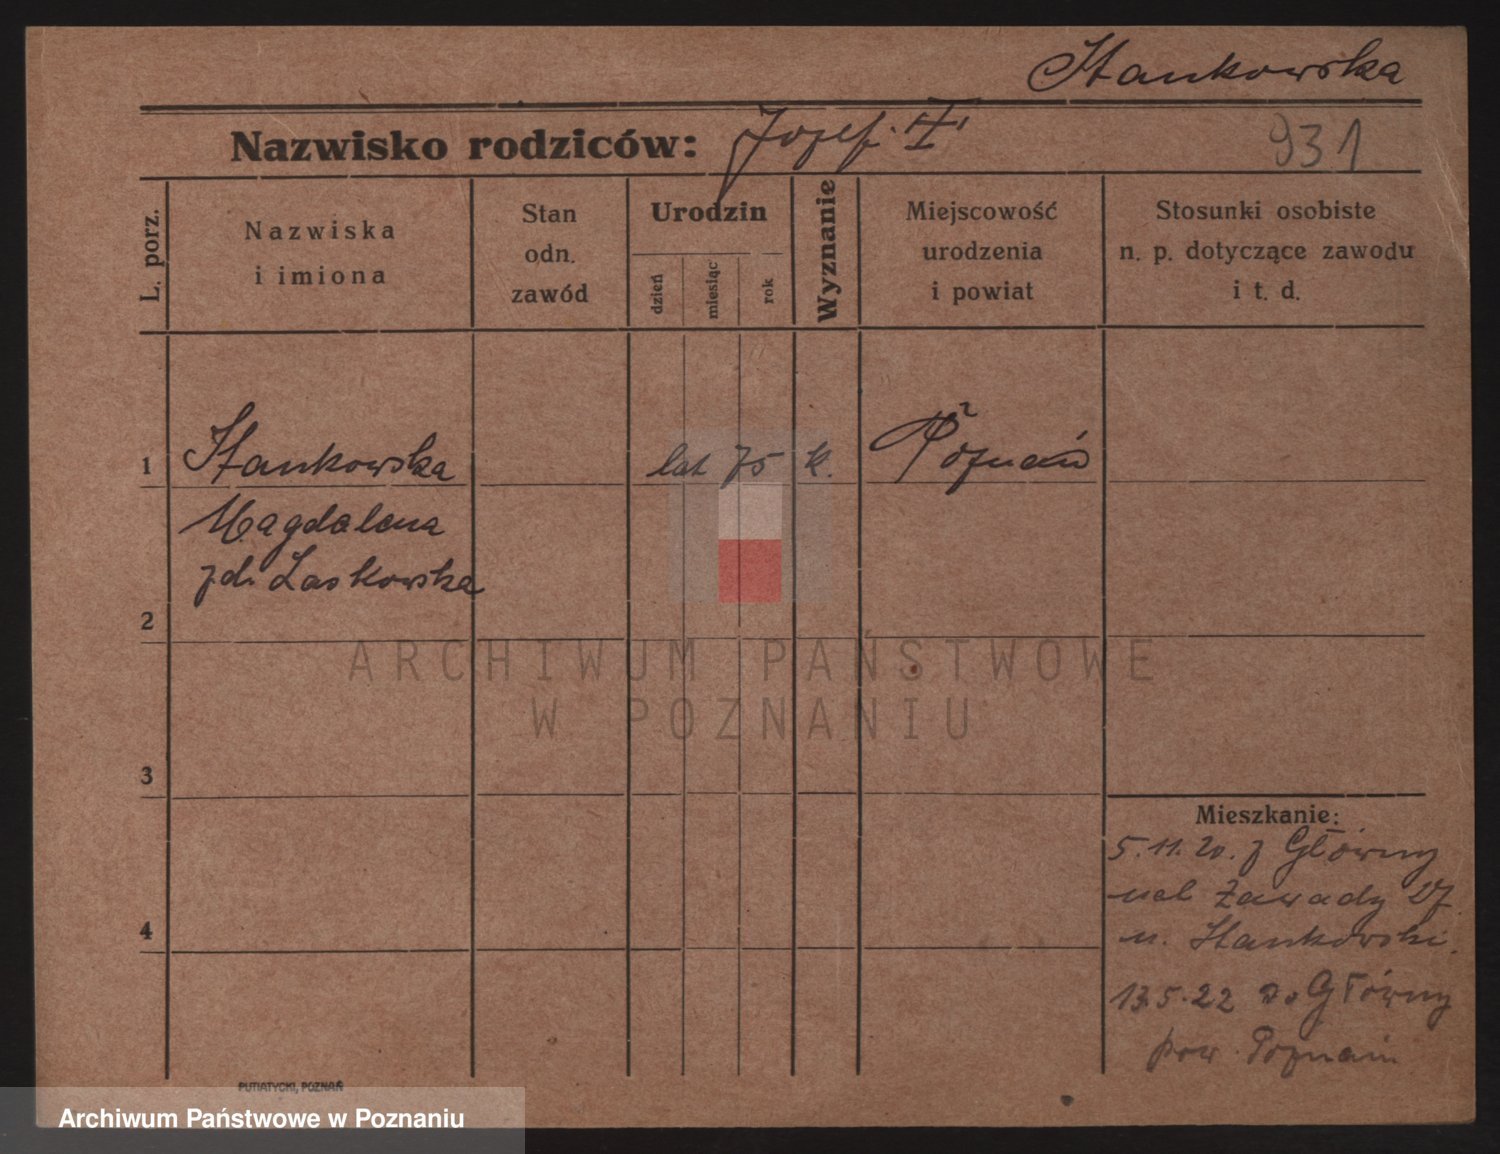 Stankowska
Nazwisko rodziców: Jozef. I
931
L. porz.
Nazwiska
i imiona
Stan
odn.
zawód
Urodzin
dzień
miesiąc
rok
Wyznanie
Miejscowość
urodzenia
i powiat
Stosunki osobiste
n. p. dotyczące zawodu
i t. d.
1 Stankowska lat 75 k. Poznań
Magdalena
zd. Laskowska
2
ARCHIWUM PAŃSTWOWE
W POZNANIU
3
4
Mieszkanie:
5.11.20. z Główny
Zawady 27.
u. Stankowski.
13.5.22 do Główny
pow. Poznań
PUTIATYCKI, POZNAŃ
Archiwum Państwowe w Poznaniu